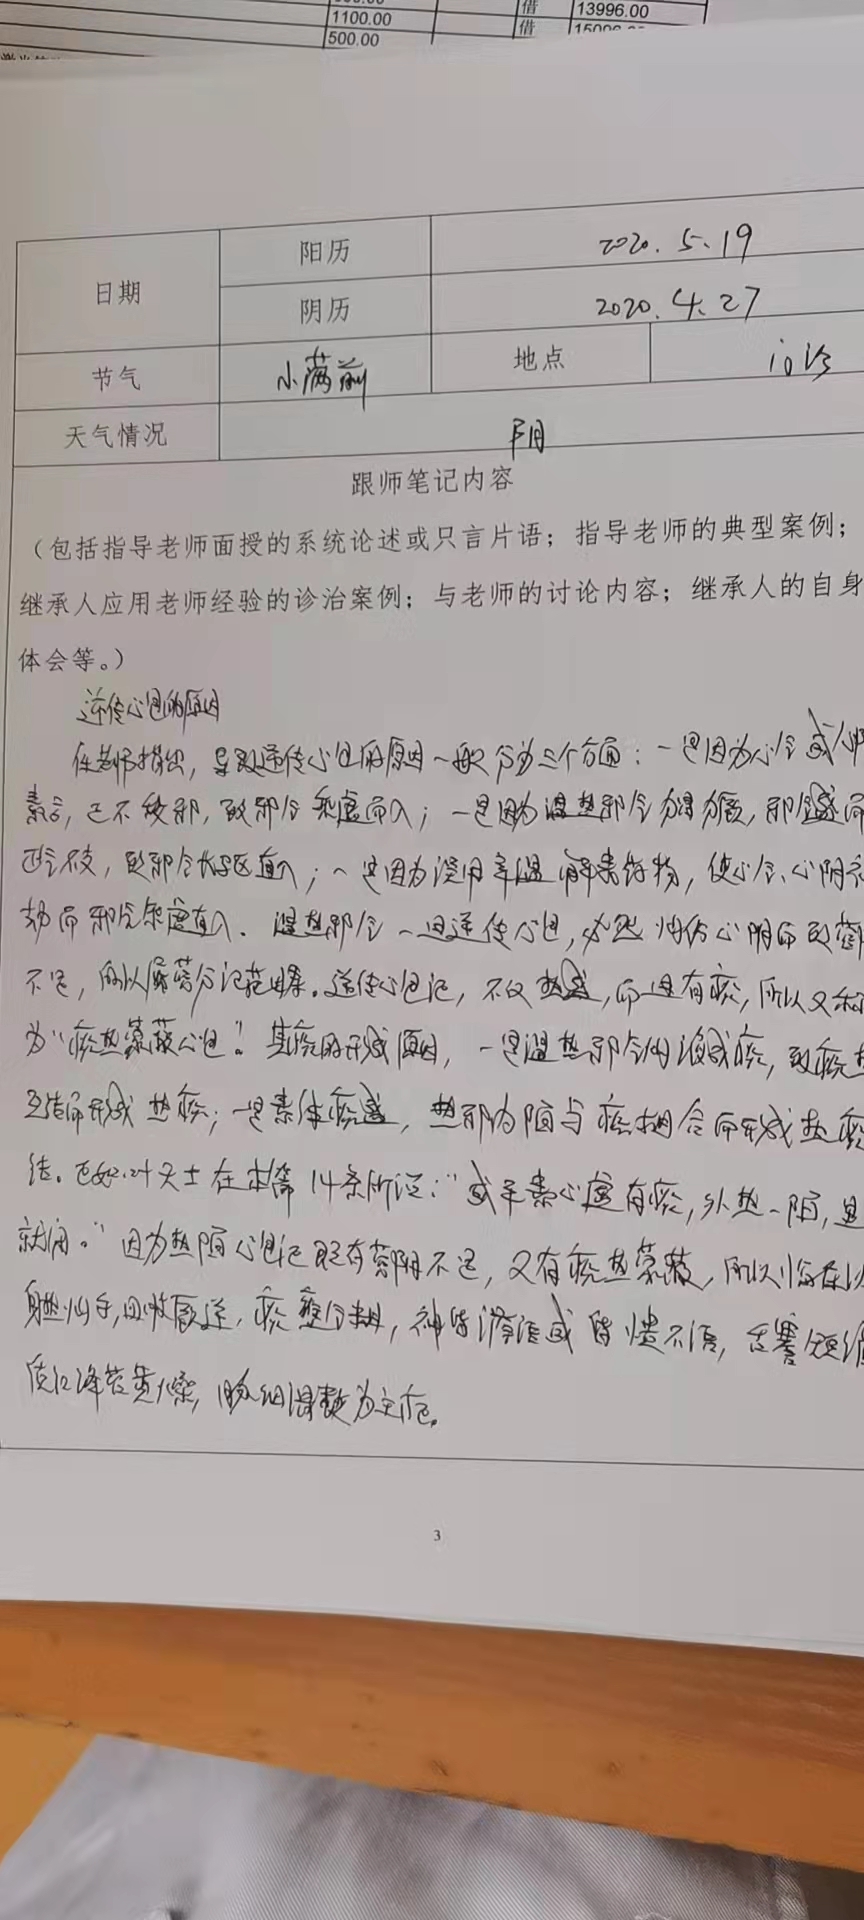 借 13996.00
1100.00 借
500.00
日期 阳历 2020.5.19
阴历 2020.4.27
节气 小满前 地点 门诊
天气情况 阴
跟师笔记内容
（包括指导老师面授的系统论述或只言片语；指导老师的典型案例；
继承人应用老师经验的诊治案例；与老师的讨论内容；继承人的自身
体会等。）
逆传心包的原因
任老师指出，导致逆传心包的原因一般分为三个方面：一是因为心气或心阴
素亏，正不敌邪，致邪气乘虚而入；一是因为温热邪气，邪气盛而
正气不支，致邪气长驱直入；一是因为误用辛温解表药物，使心气、心阴
劫而邪气乘虚直入．温热邪气一旦逆传心包，必然灼伤心阴而致营阴
不足，所以属营分证范畴。逆传心包证，不仅热盛，而且有痰，所以又称
为“痰热蒙蔽心包”。其痰的形成原因，一是温热邪气灼液成痰，致痰热
互结而形成热痰；一是素体痰盛，热邪内陷与痰相合而形成热痰
结。正如叶天士在本篇14条所说：“或平素心虚有痰，外热一陷，里
就闭。”因为热陷心包证既有营阴不足，又有痰热蒙蔽，所以临床以
身热灼手，四肢厥逆，痰壅气粗，神昏谵语或昏愦不语，舌蹇短缩
质红绛苔黄燥，脉细滑数为主症。
3